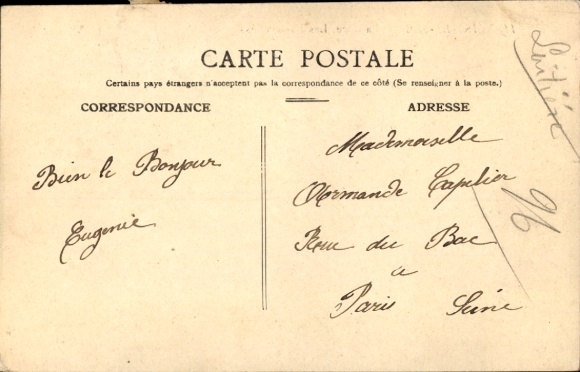 CARTE POSTALE
Certains pays étrangers n'acceptent pas la correspondance de ce côté (Se renseigner à la poste.)
CORRESPONDANCE
ADRESSE
Bien le Bonjour
Eugenie
Mademoiselle
Armande Capelier
Rue du Bac
a
Paris Seine
96